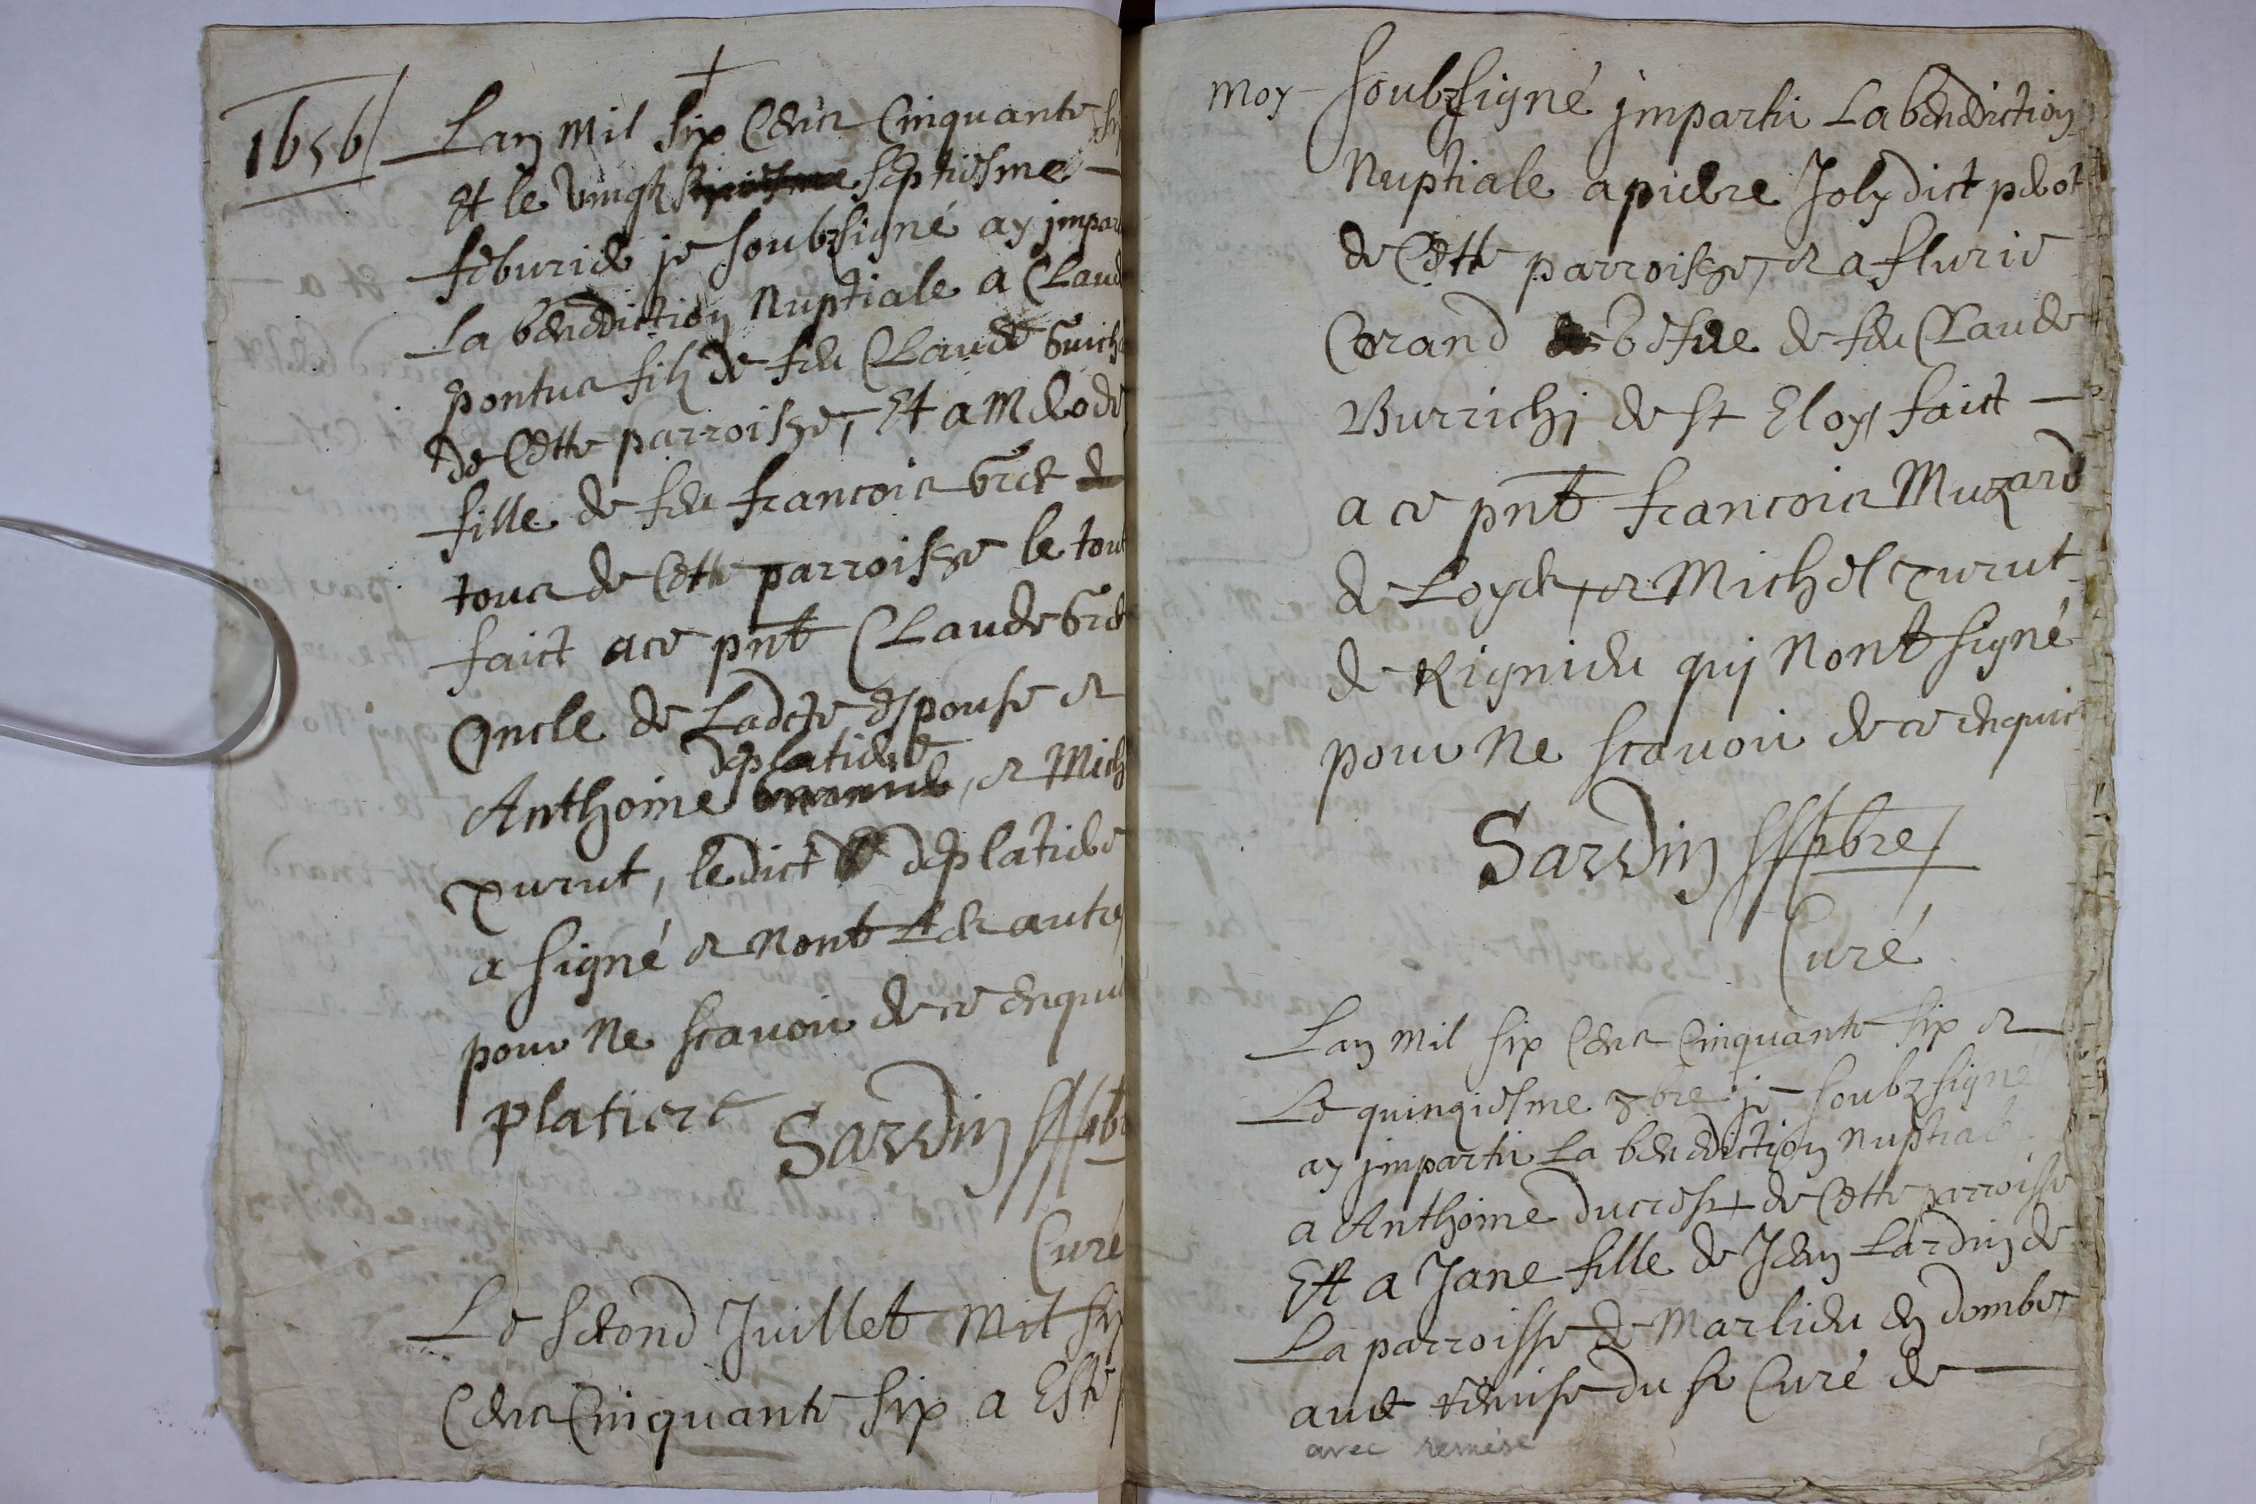 1656
Lan mil six Cens Cinquante six
Et le vingt septiesme
feburier je soubzsigné ay impar
La benediction Nuptiale a Claud
pontus filz de feu Claude Guich
de Cette parroisse, Et a
fille de feu francois
tous de Cette parroisse le tout
faict a ce pnt Claude
Oncle de Ladcte espouse et
deplatiere
Anthoine , et Mich
purut, ledict deplatiere
a signé et Nont Les autres
pour Ne scavoir de ce enquis
platiere Sardin pbre
Curé
Le second Juillet Mil six
Cens Cinquante six a Esté p
Moy soubzsigné imparti La benediction
Nuptiale a pierre Joly dict
de Cette parroisse, et a flurie
Corand vefue de feu Claude
Burrichi de st Eloy faict
a ce pnt francois Muzard
de Loyes, et Michel purut
de Rignieu quj Nont signé
pour Ne scavoir de ce enquis
Sardin pbre
Curé
Lan Mil six Cens Cinquante six et
Le quinziesme 8bre je soubzsigné
ay imparti La benediction Nuptiale
a Anthoine ducrest de Cette parroisse
Et a Jane fille de Jean Lardin de
La parroisse de Marlieu en dombes
avec remise du sr Curé de
avec remise